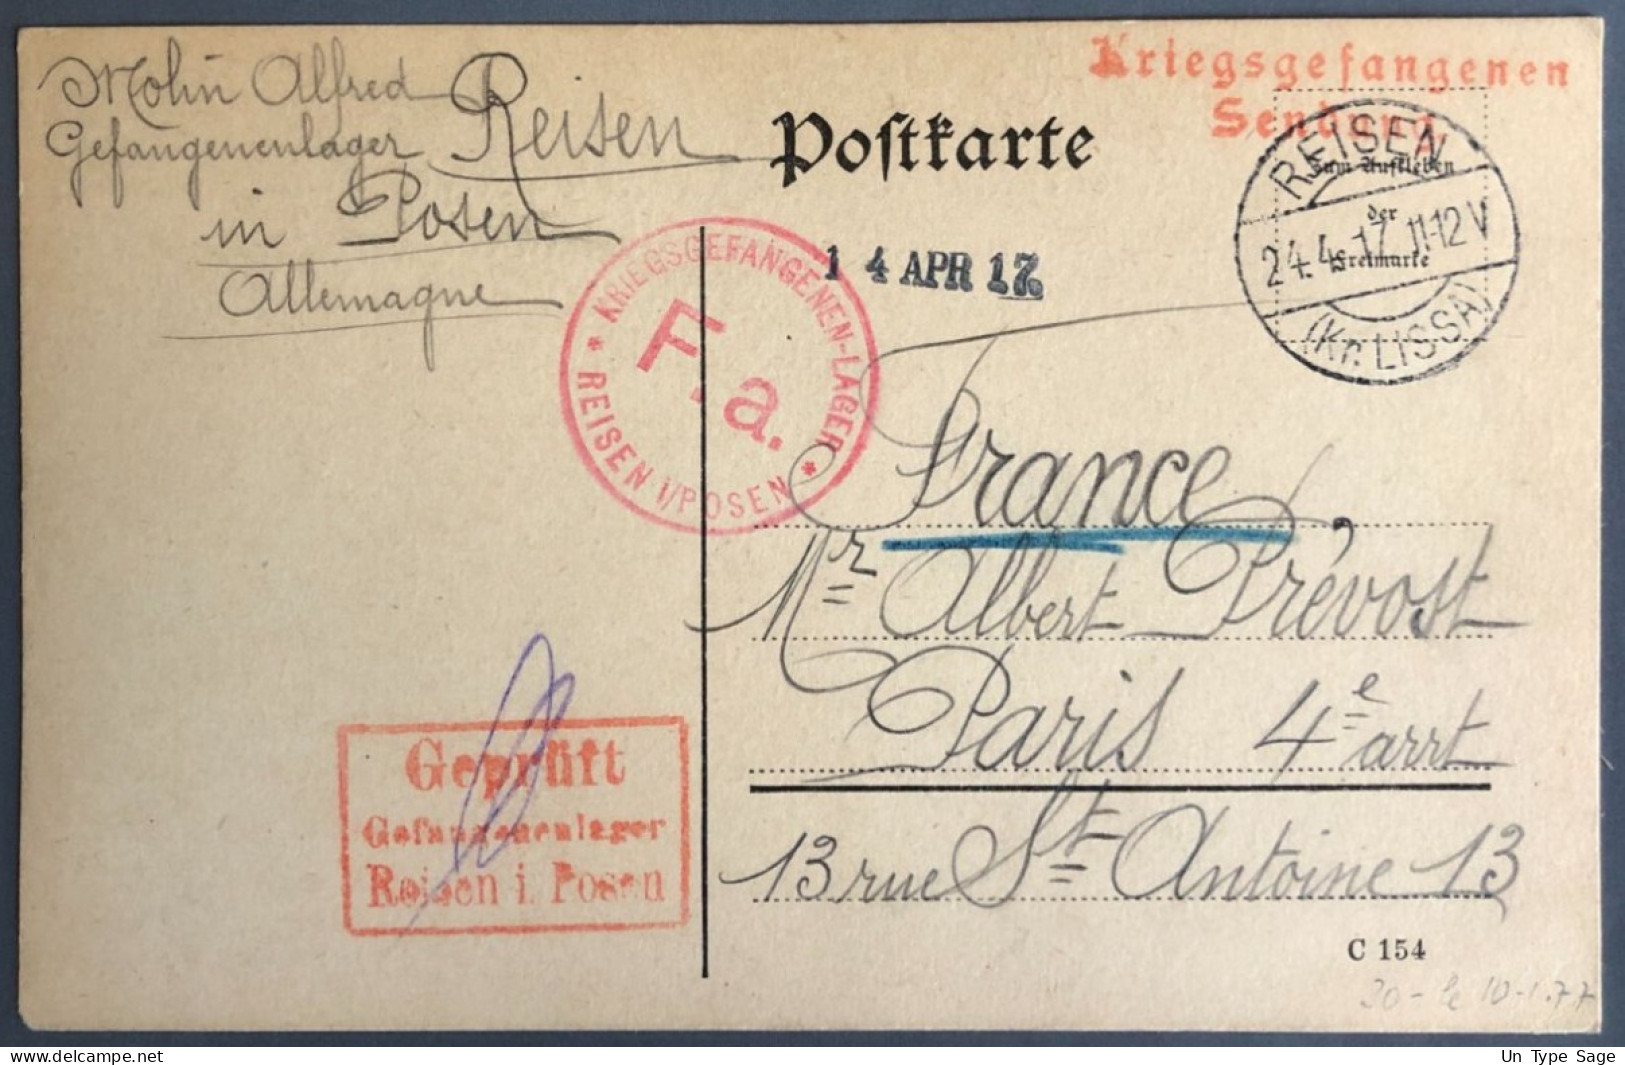 Molin Alfred
Gefangenenlager Reisen
in Posen
Allemagne
Postkarte
Kriegsgefangenen
Sendung.
Zum Aufkleben
der
Freimarke
REISEN
24.4.17.11-12V
(Kr. LISSA)
14 APR 17.
* KRIEGSGEFANGENEN-LAGER *
F.a.
REISEN i/POSEN
France,
Mr Albert Prévost
Paris 4e arrt
13 rue St Antoine 13
Geprüft
Gefangenenlager
Reisen i. Posen
C 154
delcampe.net
Un Type Sage